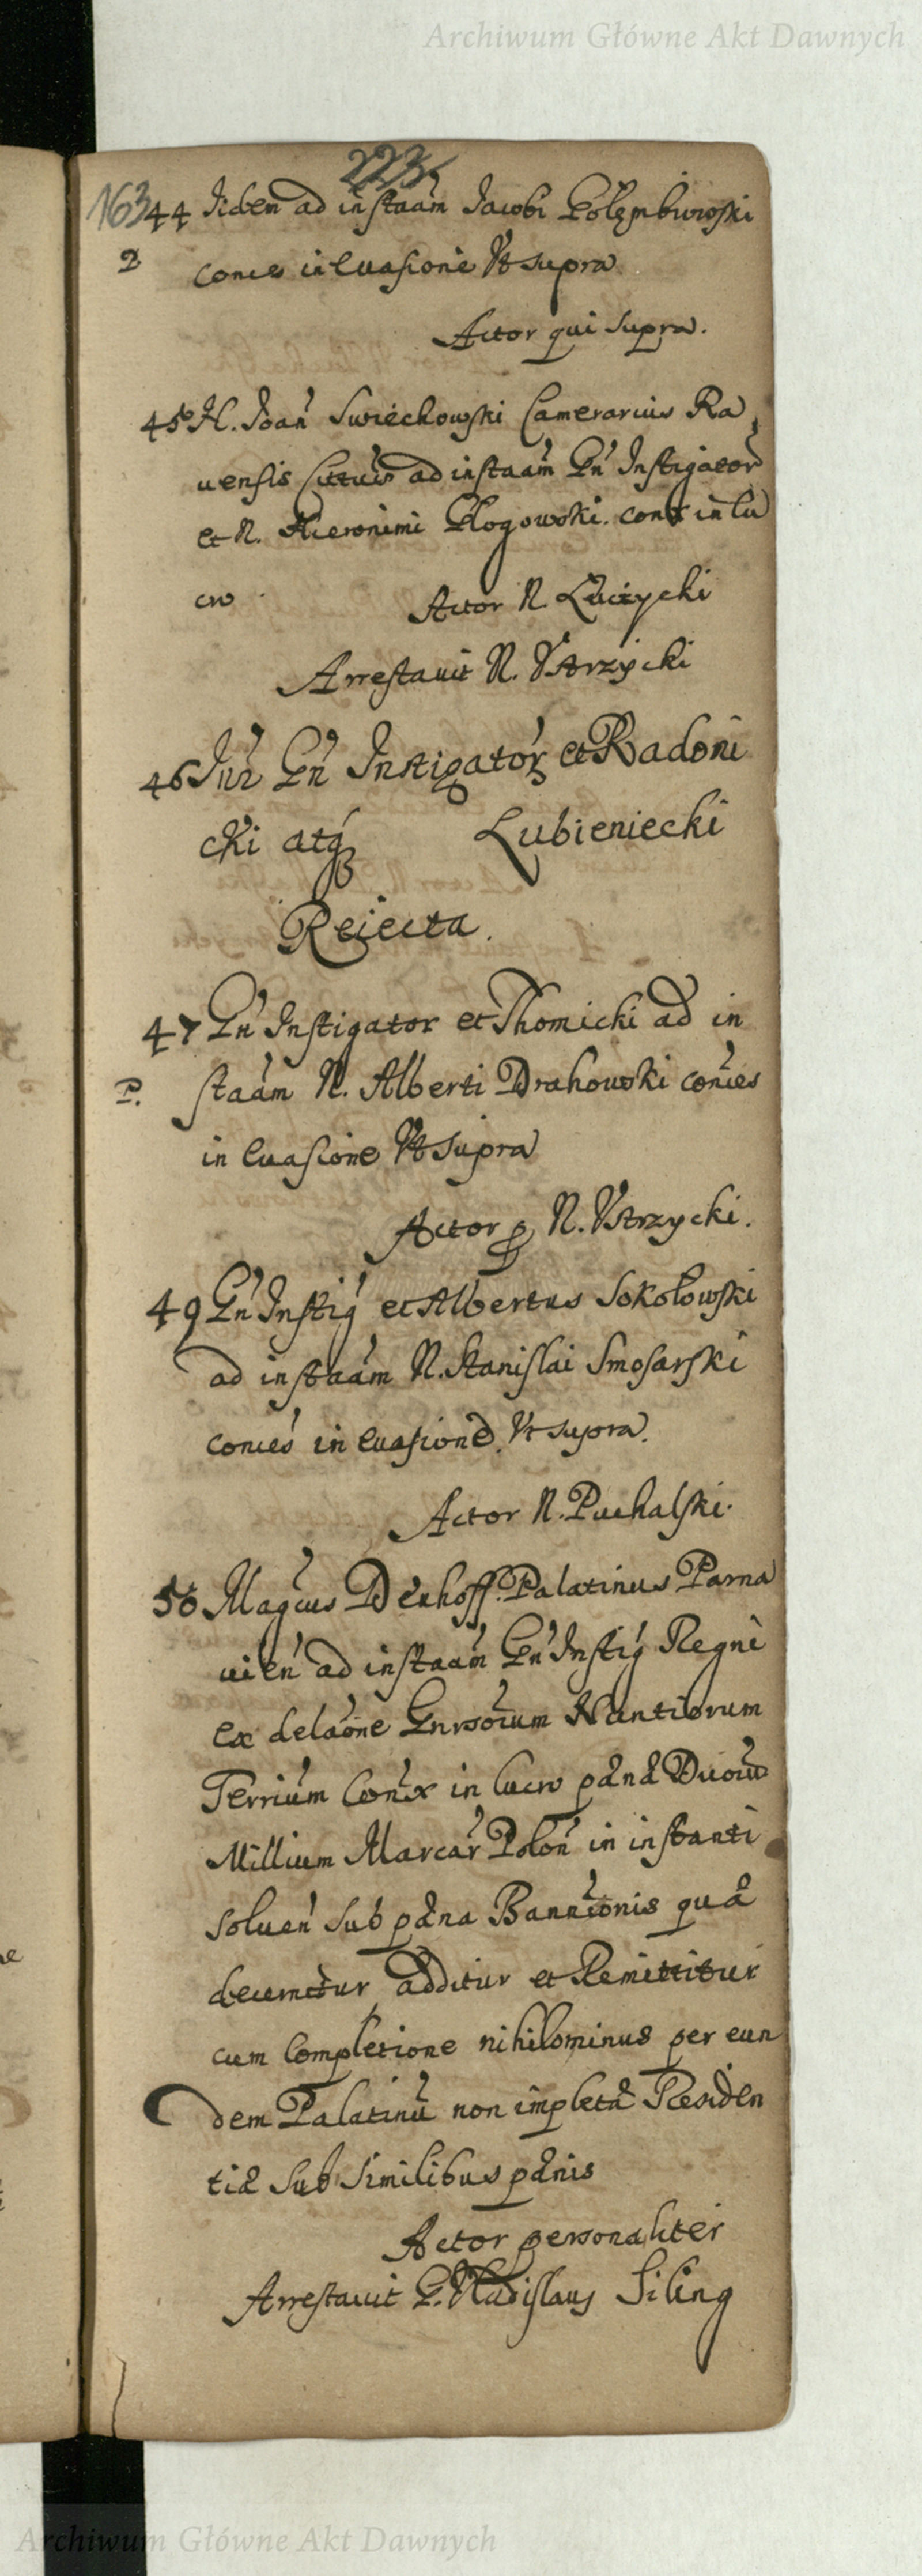 Archiwum Główne Akt Dawnych
223
163
44 Iidem ad instaam Jacobi Gołęmbiwoski
conces in euasione Vt supra
Actor qui supra.
45 N. Joan Swiechowski Camerarius Ra
uensis Cittus ad instaam Gn Instigator
et N. Hieronimi Głogowski. conx in lu
cro Actor N. Łucżycki
Arrestauit N. Vstrzycki
46 Inr Gn Instigator et Radoni
cki atq Lubieniecki
Reiecta.
47 Gn Instigator et Thomicki ad in
P. staam N. Alberti Drahowski conces
in euasione Vt supra
Actor p N. Vstrzycki.
49 Gn Instig et Albertus Sokołowski
ad instaam N. Stanislai Smosarski
conces in euasione. Vt supra.
Actor N. Puchalski.
50 Magcus Denhoff. Palatinus Parna
uien ad instaam Gn Instig Regni
ex delaone Gnrsoium Nantiorum
Terrium Conx in lucro pæna Duoru
Millium Marcar Polon in instanti
soluen sub pæna Bannionis quæ
decernitur additur et Remittitur
cum Completione nihilominus per eun
dem Palatinu non impletæ Residen
tiæ sub similibus pænis
Actor personaliter
Arrestauit G. Vladislaus Siling
Archiwum Główne Akt Dawnych